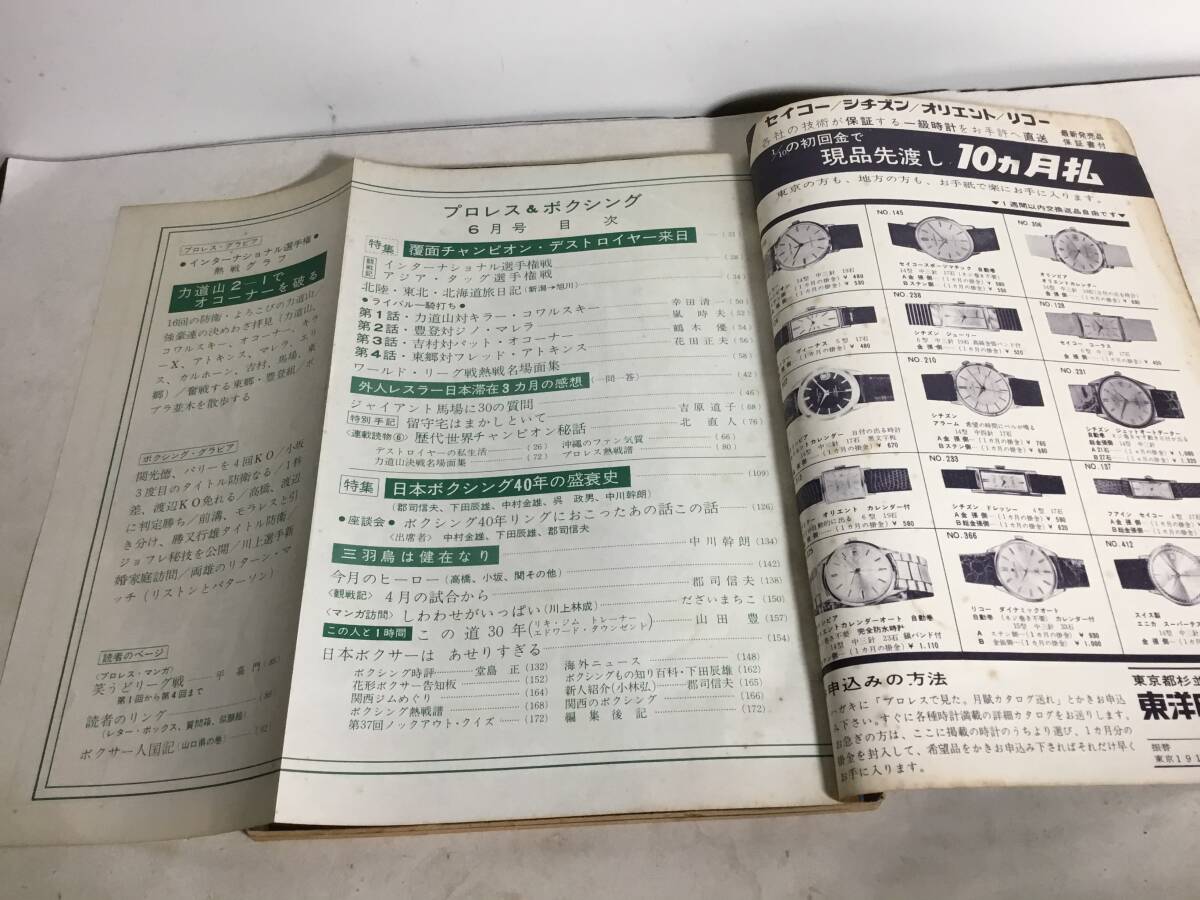 プロレス・グラビア
●インターナショナル選手権●
熱戦グラフ
力道山2―1で
オコーナーを破る
16回の防衛・よろこびの力道山/
強豪連の決めわざ拝見(力道山、
コワルスキー、オコーナー、キラ
ーX、アトキンス、マレラ、エリ
ス、カルホーン、吉村、馬場、東
郷)/奮戦する東郷・豊登組/ボ
ブラ並木を散歩する
ボクシング・グラビア
関光徳、バリーを4回KO/小坂
3度目のタイトル防衛なる/1秒
差、渡辺KO免れる/高橋、渡辺
に判定勝ち/前溝、モラレスと引
き分け、勝又行雄タイトル防衛/
ジョフレ秘技を公開/川上選手新
婚家庭訪問/両雄のリターン・マ
ッチ(リストンとパターソン)
読者のページ
〈プロレス・マンガ〉
笑うどリーグ戦
第1回から第4回まで
読者のリング
(レター・ボックス、質問箱、似顔絵)
ボクサー人国記(山口県の巻)
プロレス&ボクシング
6月号 目次
特集 覆面チャンピオン・デストロイヤー来日
観戦記 インターナショナル選手権戦
アジア・タッグ選手権戦 (34)
北陸・東北・北海道旅日記(新潟→旭川)
●ライバル一騎打ち● 幸田清一(50)
第1話・力道山対キラー・コワルスキー 嵐時夫(52)
第2話・豊登対ジノ・マレラ 鶴木優(54)
第3話・吉村対パット・オコーナー 花田正夫(56)
第4話・東郷対フレッド・アトキンス (58)
ワールド・リーグ戦熱戦名場面集
外人レスラー日本滞在3カ月の感想(一問一答) (42)
ジャイアント馬場に30の質問 (46)
特別手記 留守宅はまかしといて 吉原道子(68)
〈連載読物⑥〉歴代世界チャンピオン秘話 北直人(76)
デストロイヤーの私生活 (26) 沖縄のファン気質 (66)
力道山決戦名場面集 (72) プロレス熱戦譜 (80)
特集 日本ボクシング40年の盛衰史 (109)
(郡司信夫、下田辰雄、中村金雄、呉 政男、中川幹朗)
●座談会●ボクシング40年リングにおこったあの話この話 (126)
〈出席者〉 中村金雄、下田辰雄、郡司信夫
三羽烏は健在なり 中川幹朗(134)
今月のヒーロー(高橋、小坂、関その他) (142)
〈観戦記〉4月の試合から 郡司信夫(138)
〈マンガ訪問〉しわわせがいっぱい(川上林成) だざいまちこ(150)
この人と1時間 この道30年(リキ・ジム トレーナー エドワード・タウンゼント) 山田 豊(157)
日本ボクサーは あせりすぎる (154)
ボクシング時評 堂島 正(132) 海外ニュース (148)
花形ボクサー告知板 (152) ボクシングもの知り百科・下田辰雄(162)
関西ジムめぐり (164) 新人紹介(小林弘) 郡司信夫(165)
ボクシング熱戦譜 (168) 関西のボクシング (166)
第37回ノックアウト・クイズ (172) 編集後記 (172)
セイコー/シチズン/オリエント/リコー
各社の技術が保証する一級時計をお手許へ直送
最新発売品
保証書付
1/10の初回金で
現品先渡し 10ヵ月払
東京の方も、地方の方も、お手紙で楽にお手に入ります。
▼1週間以内交換返品自由です▼
NO.145
セイコースポーツマチック 自動巻
NO.206
オリンピア
オリエントカレンダー
NO.238
シチズン ジュエリー
NO.128
セイコー コーラス
NO.210
シチズン
アラーム 希望の時間にベルが鳴る
NO.231
シチズン ジェットオートデーター
NO.233
シチズン ドレッシー
NO.137
ファイン セイコー
NO.366
リコー ダイナミックオート
NO.412
スイス製
申込みの方法
ハガキに「プロレスで見た。月賦カタログ送れ」とかきお申込
み下さい。すぐに各種時計満載の詳細カタログをお送りします。
お急ぎの方は、ここに掲載の時計のうちより選び、1カ月分の
掛金を封入して、希望品をかきお申込み下さればそれだけ早く
お手に入ります。
東京都杉並
東洋
振替
東京191